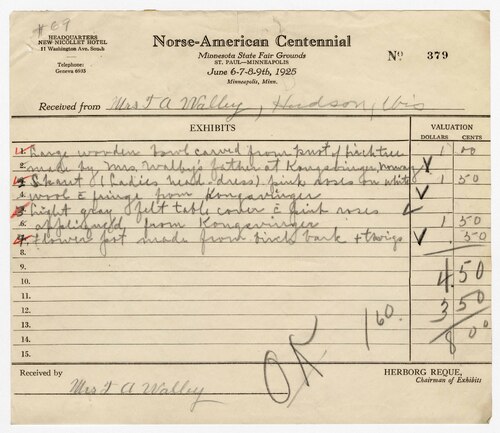 #69
HEADQUARTERS
NEW NICOLLET HOTEL
11 Washington Ave. South
Telephone:
Geneva 6935
Norse-American Centennial
Minnesota State Fair Grounds
ST. PAUL—MINNEAPOLIS
June 6-7-8-9th, 1925
Minneapolis, Minn.
No 379
Received from Mrs T A Walley, Hudson, Wis
EXHIBITS
VALUATION
DOLLARS CENTS
1. Large wooden bowl carved from knot of birch tree 1 00
2. made by Mrs. Walby's father at Kongsvinger, Norway
3. Skaut (Ladies head-dress) pink roses on white 1 50
4. wool & fringe from Kongsvinger
5. Light gray felt table cover & pink roses
6. appliqued from Kongsvinger 1 50
7. Flower pot made from birch bark + twigs . 50
8.
9. 4 50
10.
11. 3 50
12. 1 60.
13. 8 00
14.
15.
OK
Received by
Mrs T A Walley
HERBORG REQUE,
Chairman of Exhibits